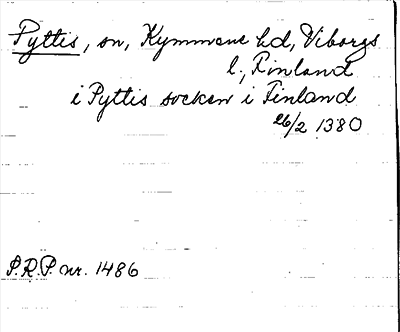 Pyttis, sn, Kymmene hd, Viborgs
l., Finland
i Pyttis socken i Finland
26/2 1380
P.R.P. nr. 1486